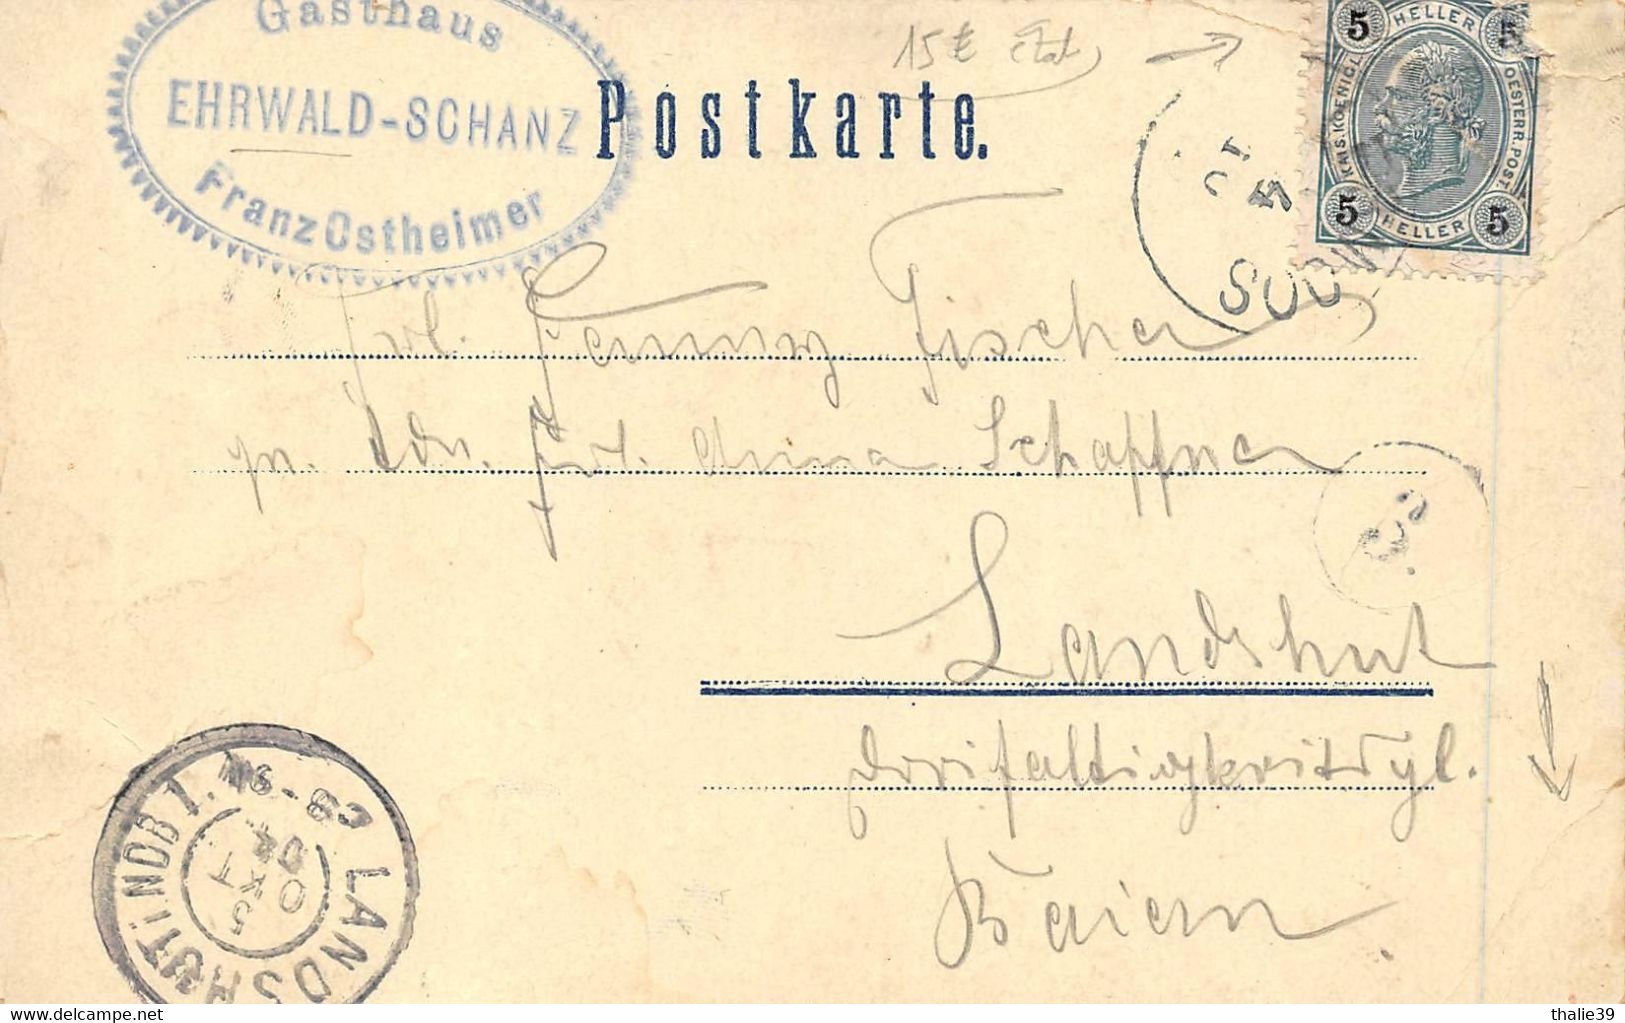 Gasthaus
EHRWALD-SCHANZ
Franz Ostheimer
Postkarte.
15€ état
5 HELLER 5
KAIS. KOENIGL. OESTERR. POST.
5 HELLER 5
Frl. Fenny Fischer
pr. Adr. Frl. Anna Schaffner
Landshut
Dreifaltigkeitspl.
Baiern
LANDSHUT i. NDB 1.
5
OKT
04
8-9N
delcampe.net
thalie39